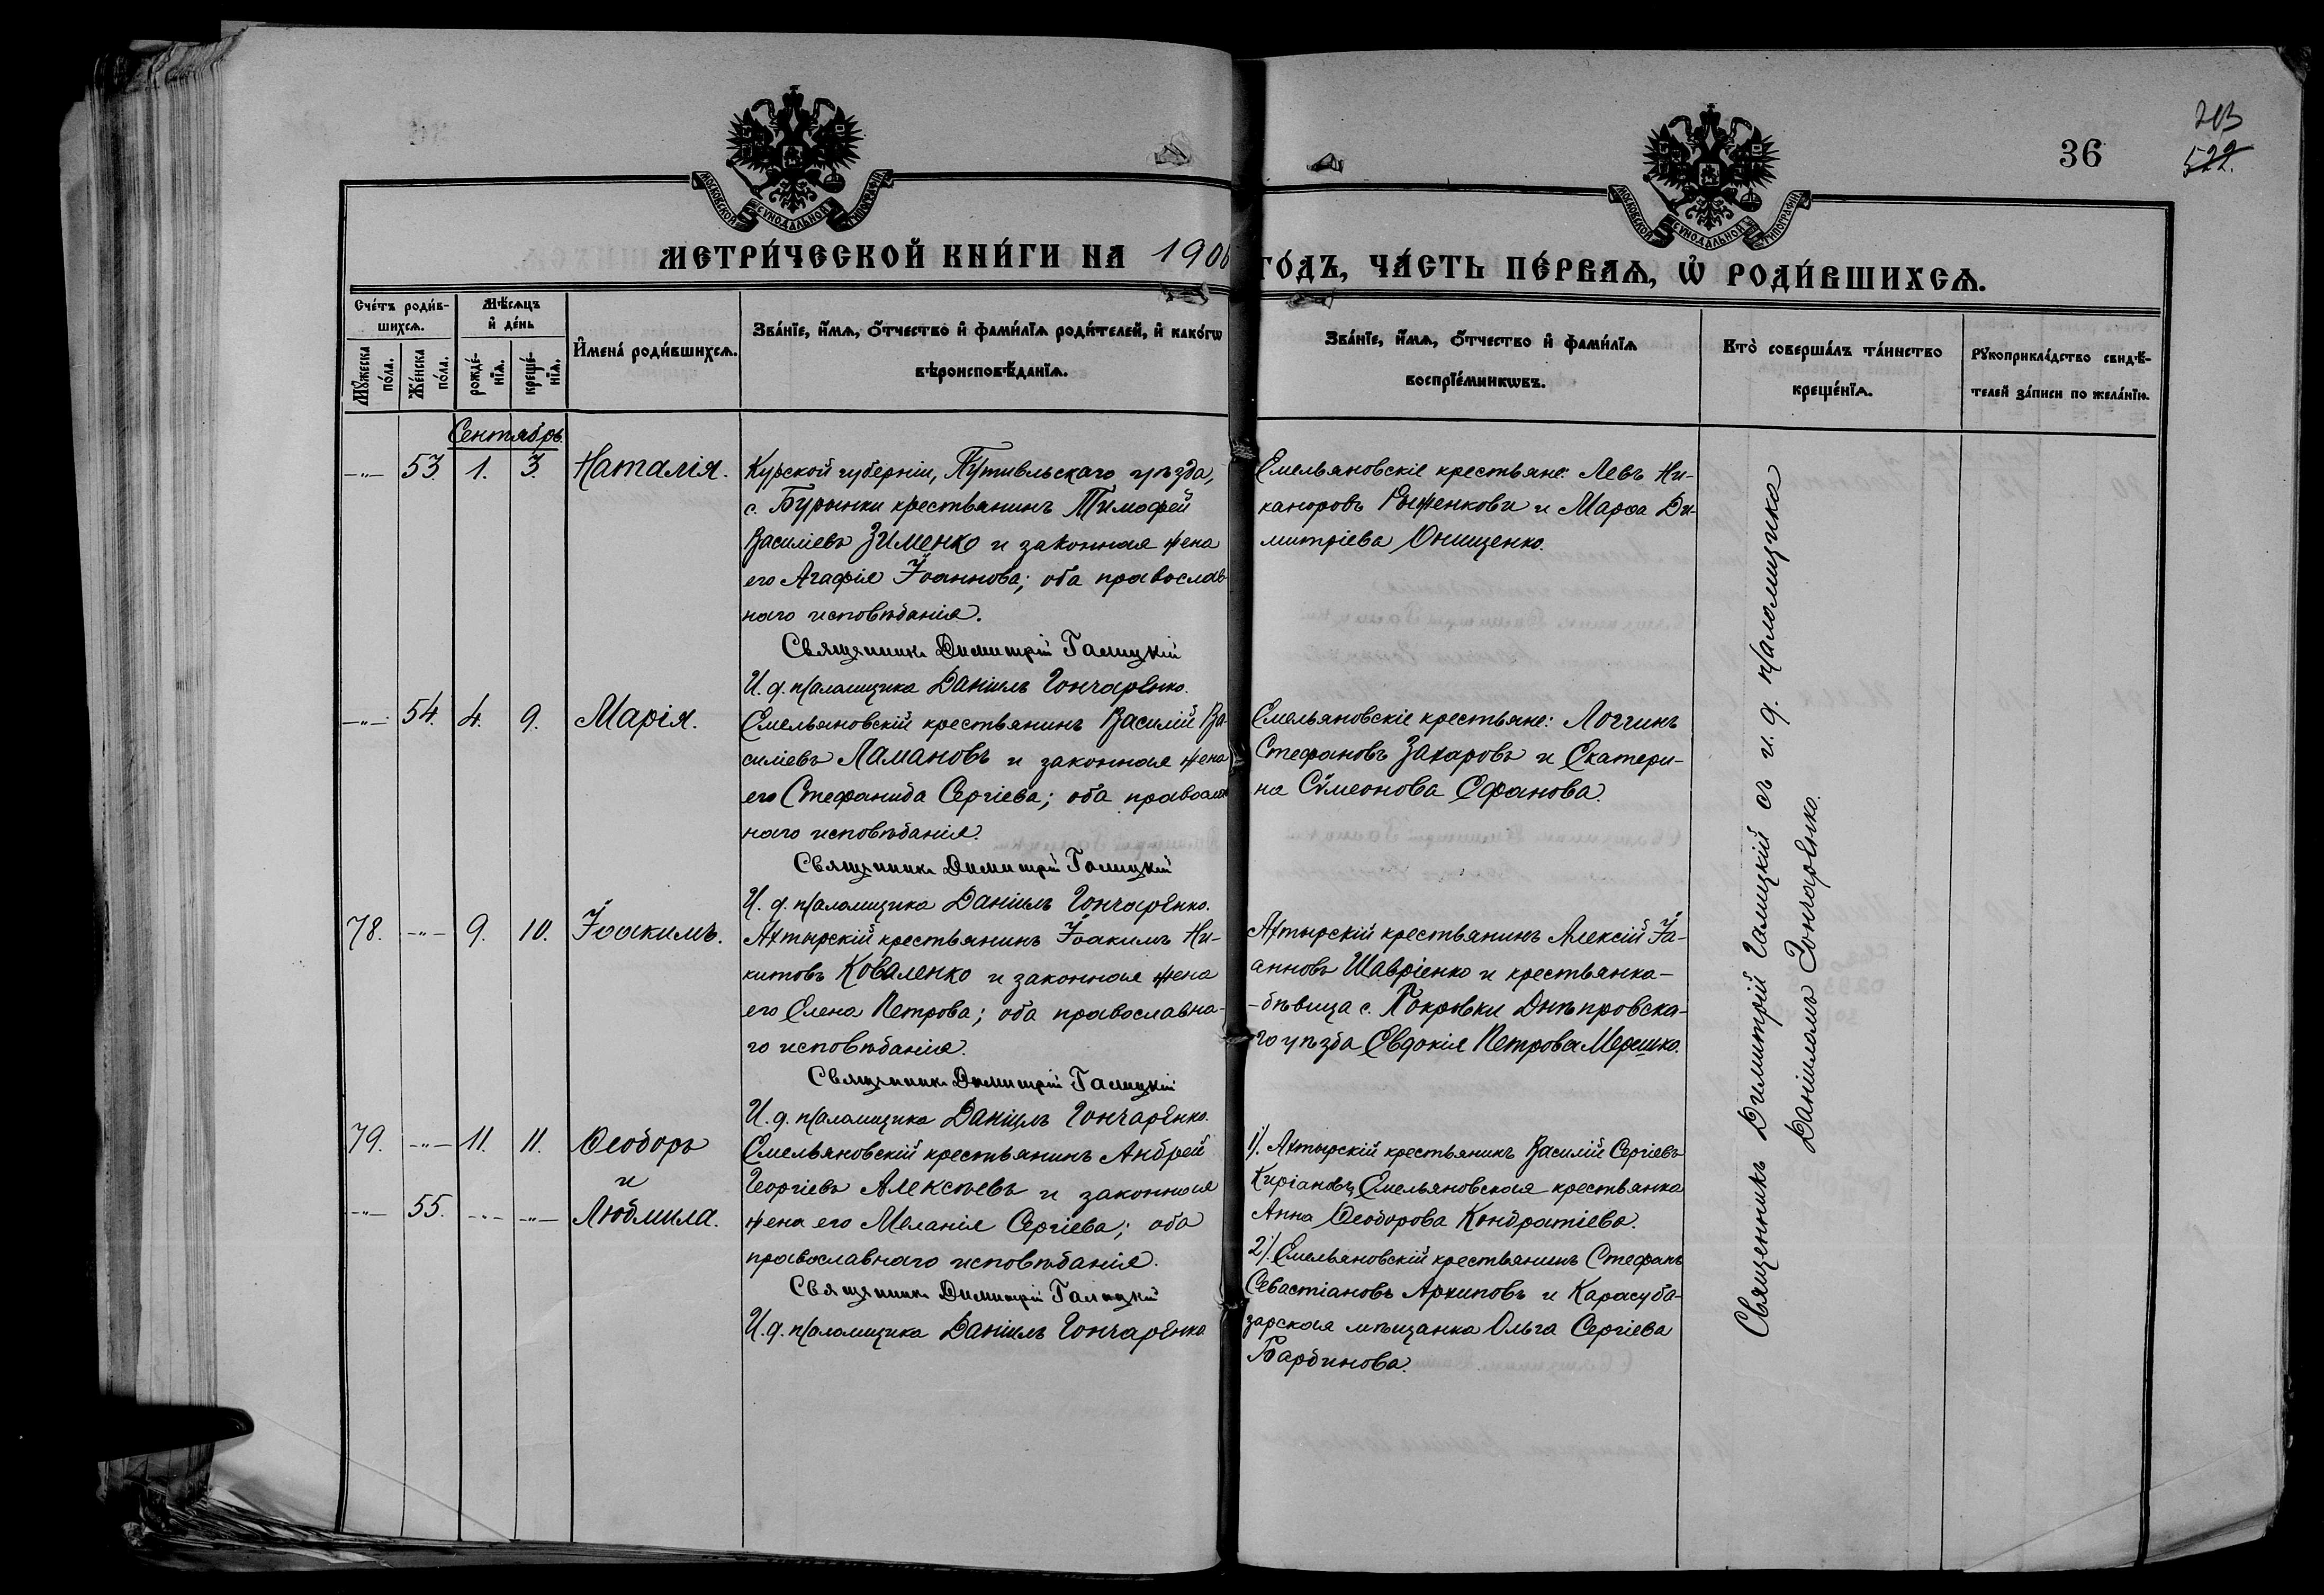 36
522.
МОСКОВСКОЙ СУНОДАЛЬНОЙ ТИПОГРАФІИ
МОСКОВСКОЙ СУНОДАЛЬНОЙ ТИПОГРАФІИ
МЕТРИ́ЧЕСКОЙ КНИ́ГИ НА 190
ГО́ДЪ, ЧА́СТЬ ПЕ́РВАѦ, Ѡ҆ РОДИ́ВШИХСѦ.
Сче́тъ роди́в-
шихсѧ.
Мꙋ́жеска по́ла.
Же́нска по́ла.
Мѣ́сѧцъ
и҆ де́нь
рожде́-нїѧ.
креще́-нїѧ.
И҆мена́ роди́вшихсѧ.
Зва́нїе, и҆́мѧ, ѻ҆́тчество и҆ фами́лїѧ роди́телей, и҆ како́гѡ
вѣроисповѣ́данїѧ.
Зва́нїе, и҆́мѧ, ѻ҆́тчество и҆ фами́лїѧ
воспрїе́мникѡвъ.
Кто̀ соверша́лъ та́инство
креще́нїѧ.
Рꙋкоприкла́дство свидѣ́-
телей за́писи по жела́нїю.
Сентябрь.
—„— 53. 1. 3. Наталія.
Курской губерніи, Путивльскаго уѣзда,
с. Бурынки крестьянинъ Тимофей
Василіевъ Зименко и законная жена
его Агафія Іоаннова; оба православ
наго исповѣданія.
Священникъ Димитрій Галицкій
И. д. псаломщика Даніилъ Гончаренко.
Емельяновскіе крестьяне: Левъ Ни-
каноровъ и Марѳа Ди-
митріева Онищенко.
—„— 54. 4. 9. Марія.
Емельяновскій крестьянинъ Василій Ва-
силіевъ Ламановъ и законная жена
его Стефанида Сергіева; оба правосла
наго исповѣданія.
Священникъ Димитрій Галицкій
И. д. псаломщика Даніилъ Гончаренко.
Емельяновскіе крестьяне: Логгинъ
Стефановъ Захаровъ и Екатери-
на Сѵмеонова Ефанова.
78. —„— 9. 10. Іоакимъ.
Ахтырскій крестьянинъ Іоакимъ Ни-
китовъ Коваленко и законная жена
его Елена Петрова; оба православна-
го исповѣданія.
Священникъ Димитрій Галицкій
И. д. псаломщика Даніилъ Гончаренко.
Ахтырскій крестьянинъ Алексій Іо-
анновъ Шавріенко и крестьянка-
-дѣвица с. Покровки Днѣпровска-
го уѣзда Евдокія Петрова Мерешко.
79. —„— 11. 11. Ѳеодоръ
и
—„— 55. —„— —„— Людмила.
Емельяновскій крестьянинъ Андрей
Георгіевъ Алексѣевъ и законная
жена его Меланія Сергіева; оба
православнаго исповѣданія.
Священникъ Димитрій Галицкій
И. д. псаломщика Даніилъ Гончаренко
1). Ахтырскій крестьянинъ Василій Сергіевъ
Киріановъ, Емельяновская крестьянка
Анна Ѳеодорова Кондратіева.
2). Емельяновскій крестьянинъ Стефанъ
Севастіановъ Архиповъ и Карасуба-
зарская мѣщанка Ольга Сергіева
Барбинова.
Священникъ Димитрій Галицкій съ и. д. псаломщика
Даніиломъ Гончаренко.